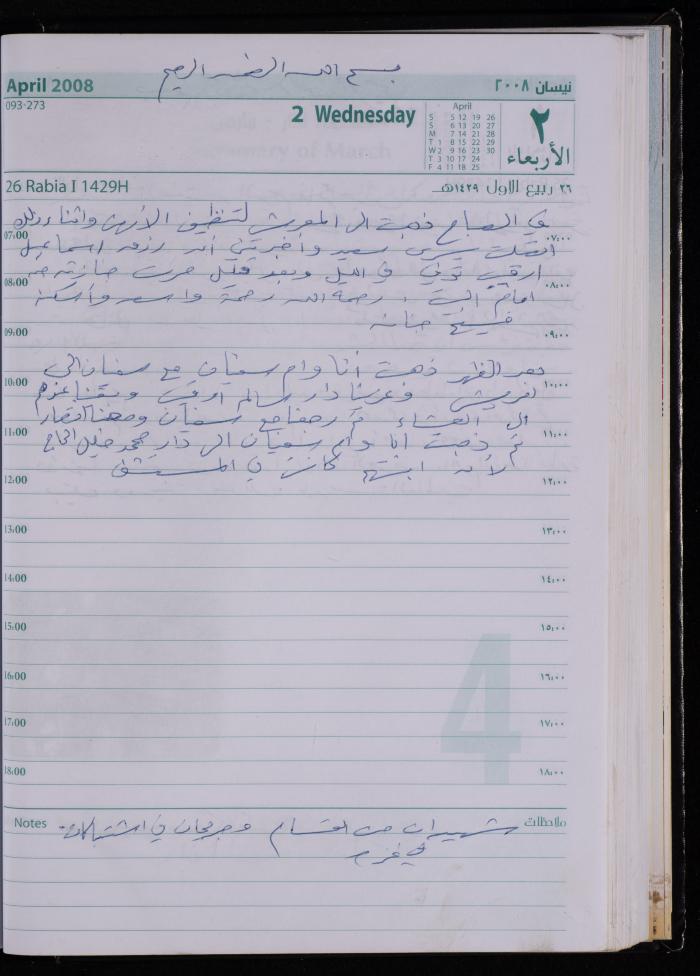 بسم الله الرحمن الرحيم
April 2008 نيسان ٢٠٠٨
093-273
2 Wednesday
April
S 5 12 19 26
S 6 13 20 27
M 7 14 21 28
T 1 8 15 22 29
W 2 9 16 23 30
T 3 10 17 24
F 4 11 18 25
٢
الأربعاء
26 Rabia I 1429H ٢٦ ربيع الاول ١٤٢٩هـ
في الصباح ذهبت الى المعرش لتنظيف الأرض واثناء ذلك
07:00 ٠٧:٠٠
اتصلت يسرى سعيد وأخبرتني أنه رزق اسماعيل
ارقيق توفي في الليل وبعد قليل مرت جنازته من
08:00 ٠٨:٠٠
امام البيت . رحمه الله رحمة واسعة وأسكنه
فسيح جنانه
09:00 ٠٩:٠٠
بعد الظهر ذهبت أنا وام سفيان مع سفيان الى
10:00 ١٠:٠٠
وعزينا دار سالم ارقيق وبقينا عندهم
الى العشاء ثم رجعنا مع سفيان
11:00 ١١:٠٠
ثم ذهبت انا وام سفيان الى دار محمد خليل الحاج
لأنه ابنتهم كانت في المستشفى
12:00 ١٢:٠٠
13:00 ١٣:٠٠
14:00 ١٤:٠٠
15:00 ١٥:٠٠
16:00 ١٦:٠٠
17:00 ١٧:٠٠
18:00 ١٨:٠٠
4
Notes ملاحظات
شهيدان من القسام وجريحان في اشتباكات
في غزة